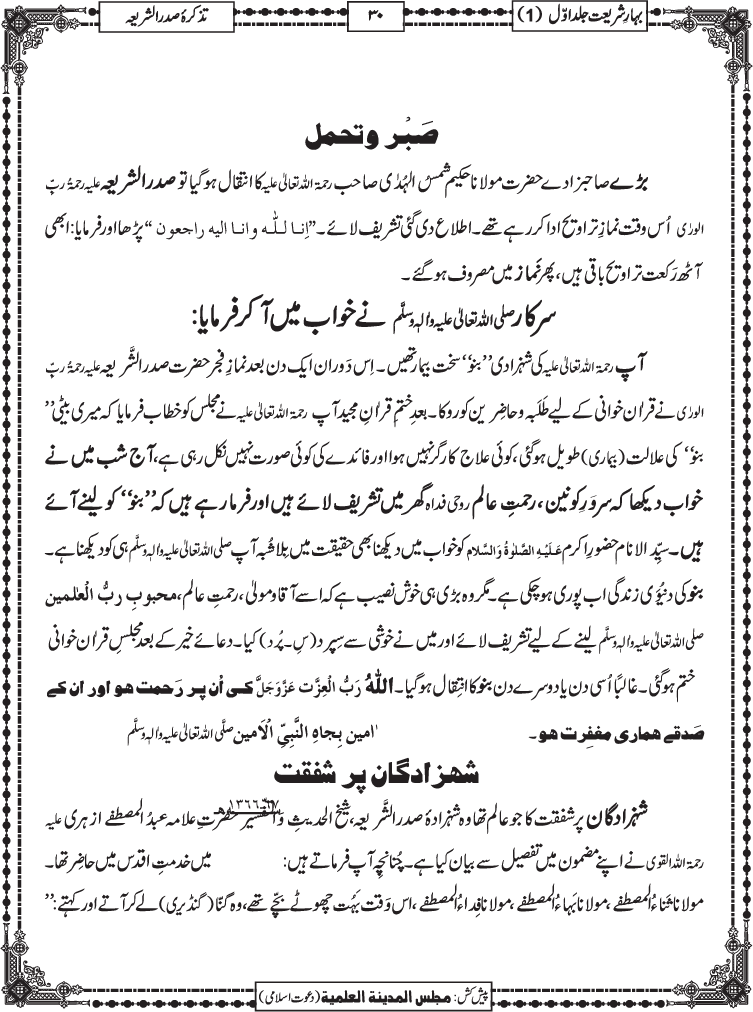 بہارِ شریعت جلد اوّل (1)
۳۰
تذکرۂ صدر الشریعہ
صَبْر وتحمل
بڑے صاحبزادے حضرت مولانا حکیم شمس الہُدٰی صاحب رحمۃ اللہ تعالیٰ علیہ کا انتقال ہوگیا تو صدر الشریعہ علیہ رحمۃُ ربِّ
الورٰی اُس وقت نمازِ تراویح ادا کر رہے تھے۔ اطلاع دی گئی تشریف لائے۔ ’’اِنا للّٰہ وانا الیہ راجعون‘‘ پڑھا اور فرمایا: ابھی
آٹھ رَکعت تراویح باقی ہیں، پھر نَماز میں مصروف ہو گئے۔
سرکار صلی اللہ تعالیٰ علیہ واٰلہٖ وسلَّم نے خواب میں آ کر فرمایا:
آپ رحمۃ اللہ تعالیٰ علیہ کی شہزادی ’’بنو‘‘ سخت بیمار تھیں۔ اِس دَوران ایک دن بعد نمازِ فجر حضرت صدرُ الشَّریعہ علیہ رحمۃُ ربِّ
الورٰی نے قراٰن خوانی کے لیے طلَبہ و حاضِرین کو روکا۔ بعدِ ختمِ قراٰنِ مجید آپ رحمۃ اللہ تعالیٰ علیہ نے مجلس کو خطاب فرمایا کہ میری بیٹی ’’
بنو‘‘ کی علالت (بیماری) طویل ہو گئی، کوئی علاج کارگر نہیں ہوا اور فائدے کی کوئی صورت نہیں نکل رہی ہے، آج شب میں نے
خواب دیکھا کہ سرورِ کونین، رحمتِ عالم روحی فداہ گھر میں تشریف لائے ہیں اور فرما رہے ہیں کہ ’’بنو‘‘ کو لینے آئے
ہیں۔ سیِّد الانام حضورِ اکرم عَلَیْہِ الصَّلٰوۃُ وَالسَّلام کو خواب میں دیکھنا بھی حقیقت میں بِلا شُبہ آپ صلی اللہ تعالیٰ علیہ واٰلہٖ وسلَّم ہی کو دیکھنا ہے۔
بنو کی دنیَوی زندگی اب پوری ہو چکی ہے۔ مگر وہ بڑی ہی خوش نصیب ہے کہ اسے آقا و مولیٰ، رحمتِ عالم، محبوبِ ربُّ الْعٰلمین
صلی اللہ تعالیٰ علیہ واٰلہٖ وسلَّم لینے کے لیے تشریف لائے اور میں نے خوشی سے سِپرد (سِ۔پُرد) کیا۔ دعائے خیر کے بعد مجلسِ قراٰن خوانی
ختم ہو گئی۔ غالبًا اُسی دن یا دوسرے دن بنو کا انتِقال ہو گیا۔ اللّٰہُ رَبُّ الْعِزَّت عَزَّوَجَلَّ کی اُن پر رَحمت ہو اور ان کے
صَدقے ہماری مغفِرت ہو۔ اٰمین بِجاہِ النَّبِیِّ الْاَمین صلَّی اللہ تعالیٰ علیہ واٰلہٖ وسلَّم
شہزادگان پر شفقت
شہزادگان پر شفقت کا جو عالم تھا وہ شہزادۂ صدر الشَّریعہ، شیخُ الحدیثِ وَالتفسیر حضرتِ علامہ عبدُ المصطفٰے ازہری علیہ
رحمۃ اللہ القوی نے اپنے مضمون میں تفصیل سے بیان کیا ہے۔ چُنانچِہ آپ فرماتے ہیں: میں خدمتِ اقدس میں حاضر تھا۔
مولانا ثناءُ المصطفٰے، مولانا بہاءُ المصطفٰے، مولانا فِداءُ المصطفٰے، اس وَقت بَہُت چھوٹے بچّے تھے، وہ گنّا (گنڈیری) لے کر آتے اور کہتے: ’’
پیش کش: مجلس المدینۃ العلمیۃ (دعوتِ اسلامی)